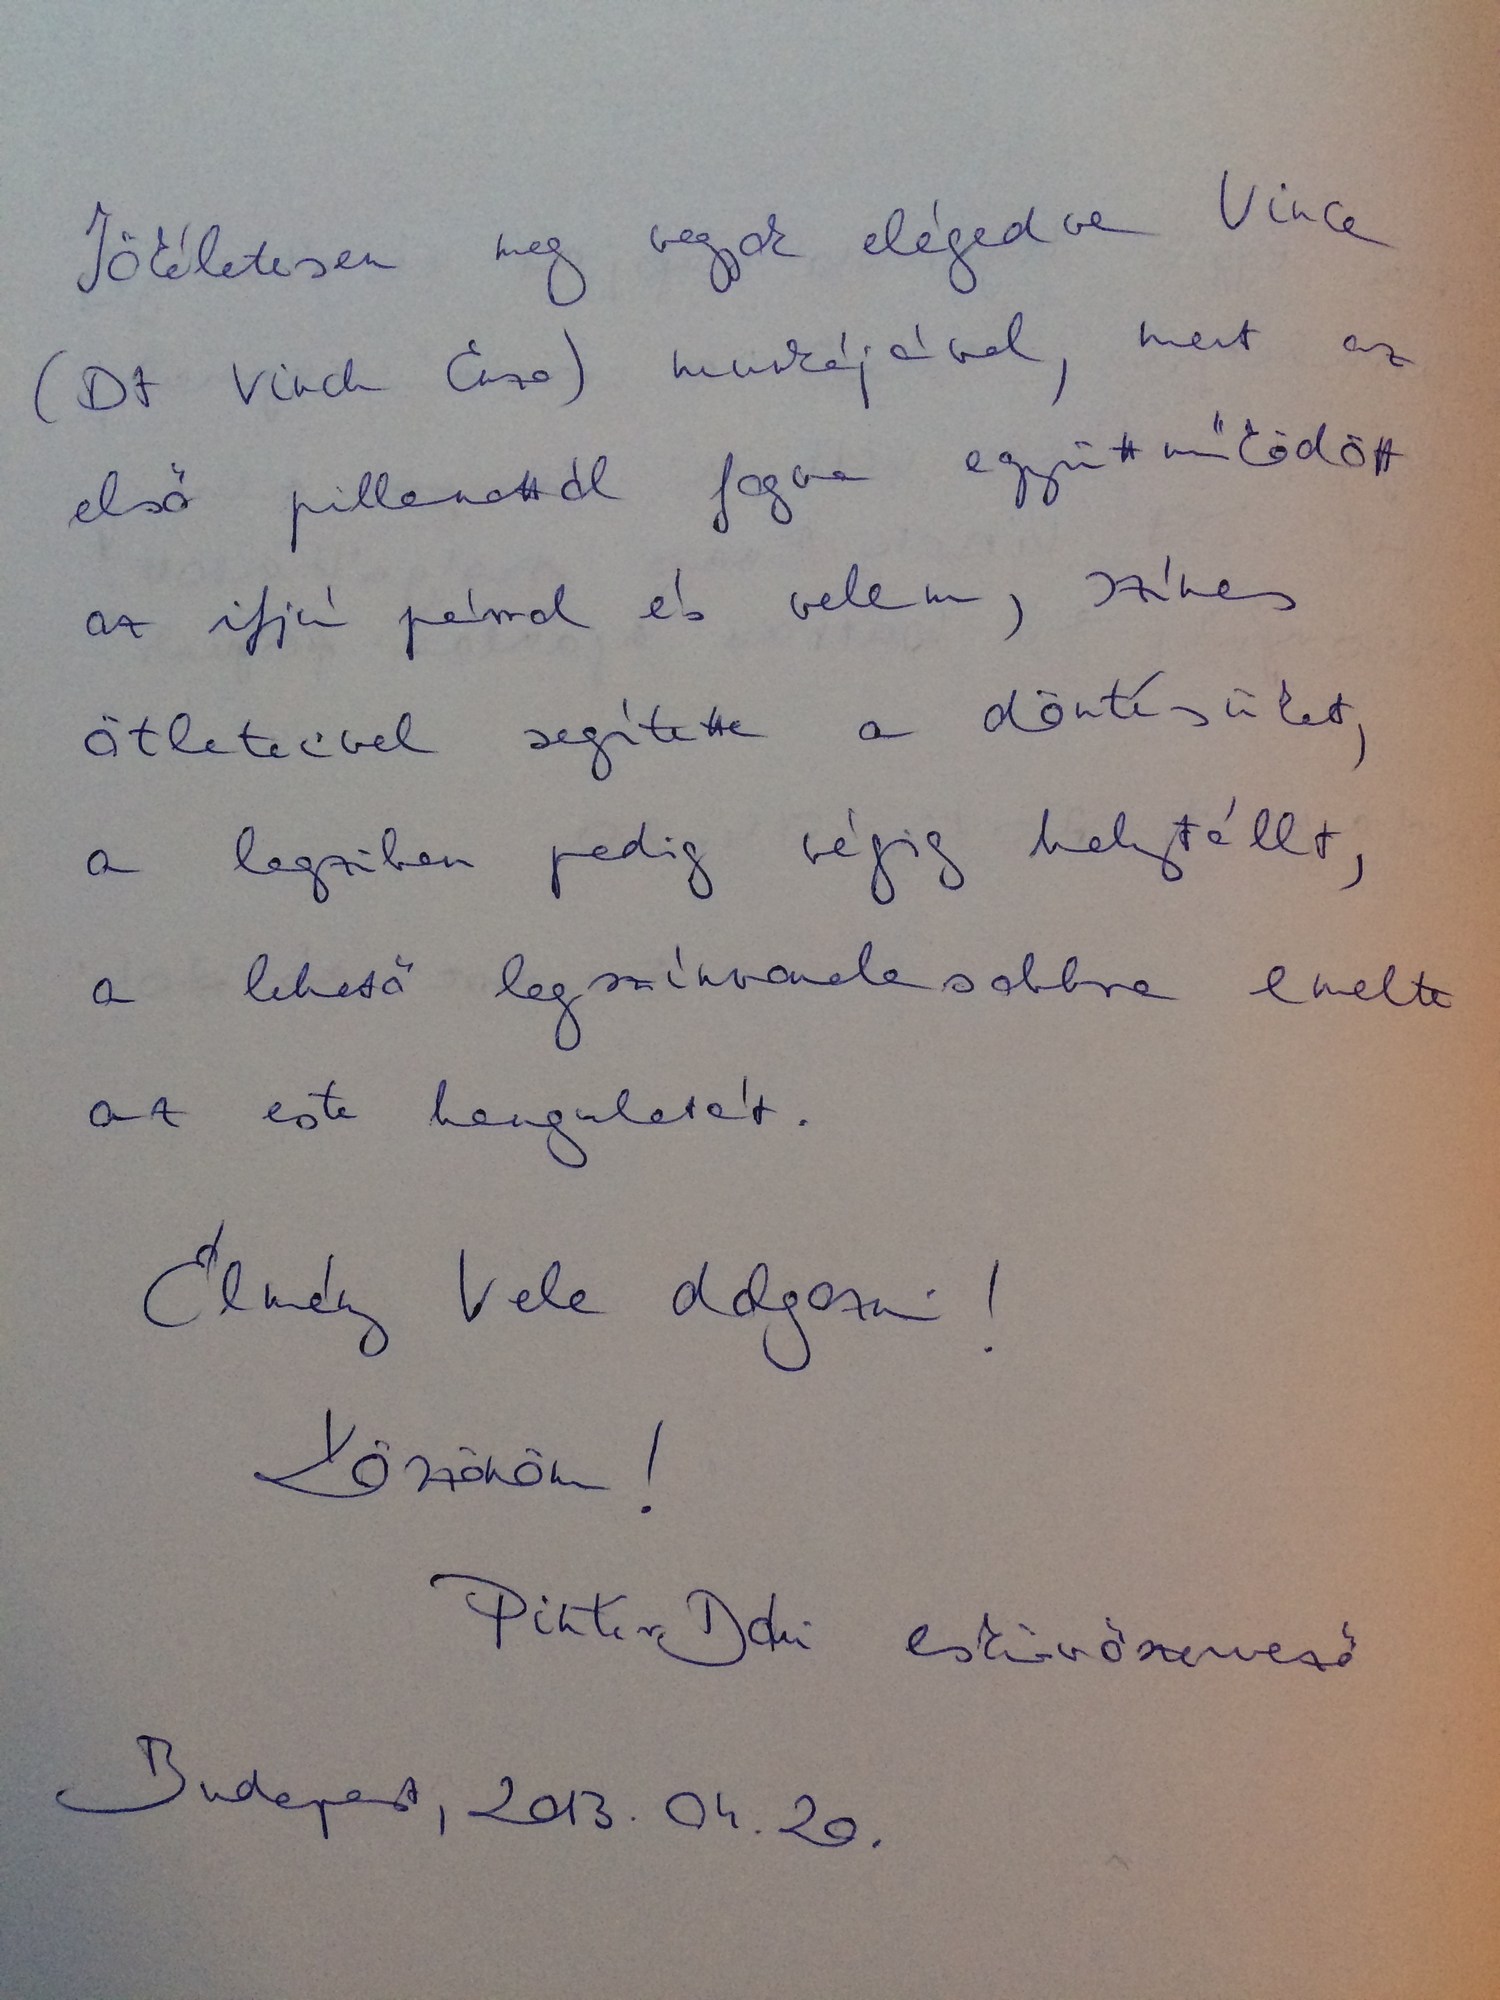 Tökéletesen meg vagyok elégedve Vince
(DJ Vinch Enzo) munkájával, mert az
első pillanattól fogva együttműködött
az ifjú párral és velem, színes
ötleteivel segítette a döntésüket,
a legziben pedig végig helytállt,
a lehető legszínvonalasabbra emelte
az este hangulatát.
Élmény Vele dolgozni!
Köszönöm!
Pintér Dóri esküvőszervező
Budapest, 2013. 04. 20.